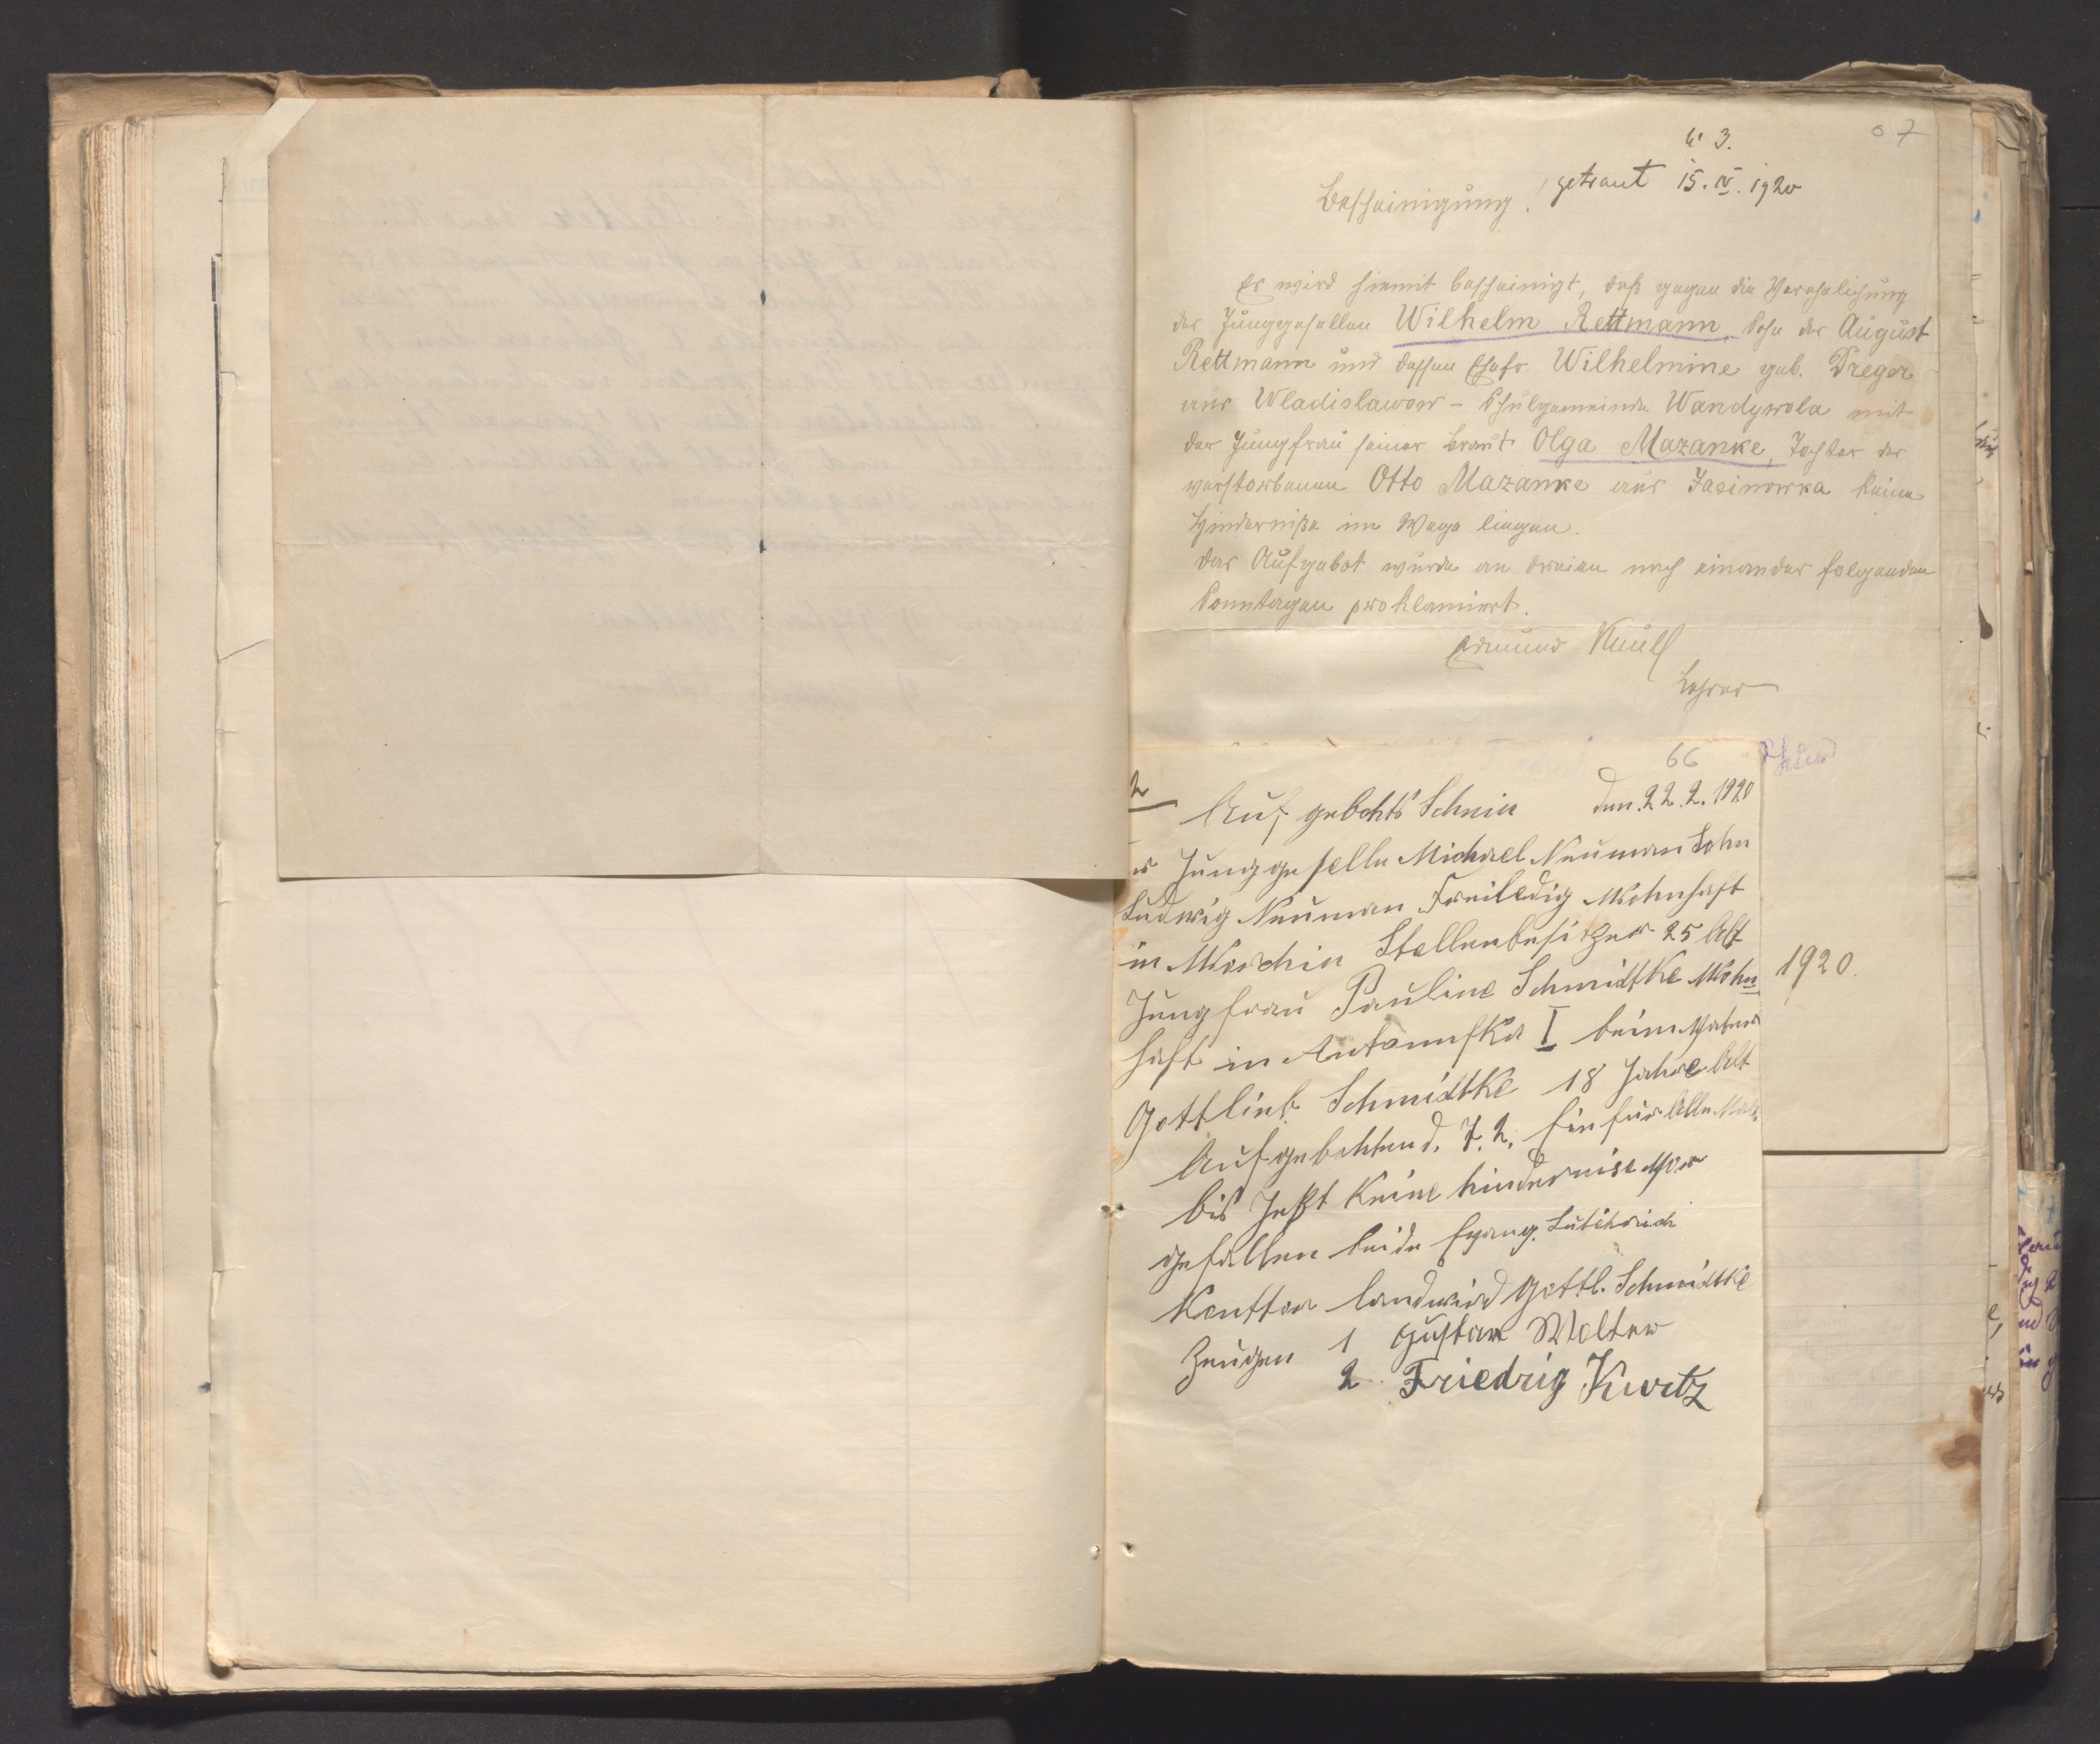 67
№ 3.
getraut 15. IV. 1920
Bescheinigung!
Es wird hiermit bescheinigt, daß gegen die Verehelichung
des Junggesellen Wilhelm Rettmann, Sohn des August
Rettmann und dessen Ehefr. Wilhelmine geb. Dreger
aus Wladislawow - Schulgemeinde Wandywola mit
der Jungfrau seiner Braut Olga Mazanke, Tochter des
verstorbenen Otto Mazanke aus Jasinowka keine
Hinderniße im Wege liegen.
Das Aufgebot wurde an dreien nach einander folgenden
Sonntagen proklamiert.
Edmund Knull
Lehrer
66
2
Auf gebohts Schein den. 22. 2. 1920
Junggeselle Michael Neuman Sohn
Ludwig Neuman Freiledig Wohnhaft
in Worchin Stellenbesitzer 25 Alt
Jungfrau Pauline Schmidtke Wohn
haft in Antonufka I beim Vater
Gottlieb Schmidtke 18 Jahre Alt
Aufgebohten d. 7. 2. Ein für Alle Male
bis Jetzt Keine hindernise Vor
gefallen beide Evang. Lutherich
Kanttor landwird Gottl. Schmidtke
Zeugen 1 Gustaw Wolter
2 Friedrig Kurtz
1920.